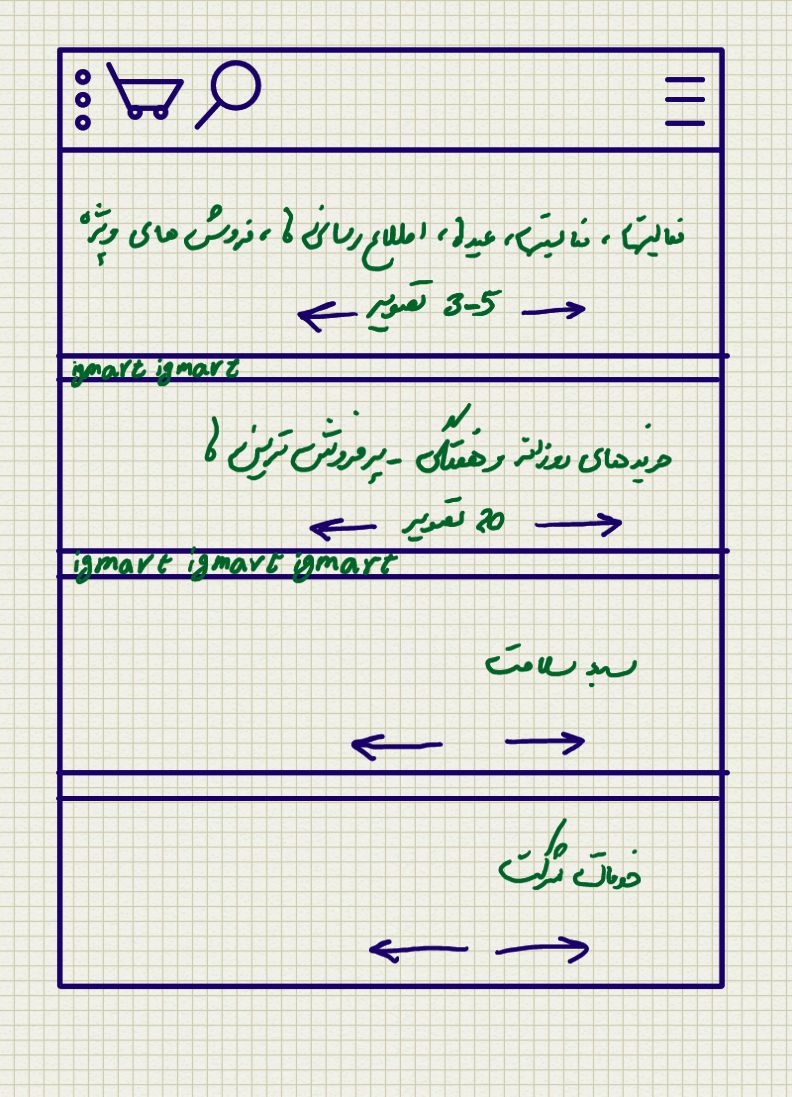 فعالیتها، فعالیتها، عیدها، اطلاع رسانی ها، فروش های ویژه
3-5 تصویر
igmart igmart
خریدهای روزانه و هفتگی - پرفروش ترین ها
20 تصویر
igmart igmart igmart
سبد سلامت
خدمات شرکت